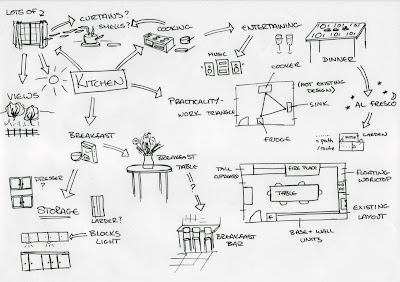 LOTS OF?
CURTAINS?
SMELLS?
COOKING
ENTERTAINING
DINNER
MUSIC
KITCHEN
VIEWS
PRACTICALITY-
WORK TRIANGLE
COOKER
(NOT EXISTING
DESIGN)
SINK
FRIDGE
AL FRESCO
GARDEN
= path
/route
BREAKFAST
BREAKFAST
TABLE
?
DRESSER
?
STORAGE
LARDER?
BLOCKS
LIGHT
BREAKFAST
BAR
TALL
CUPBOARDS
FIRE PLACE
TABLE
FLOATING
WORKTOP
EXISTING
LAYOUT
BASE + WALL
UNITS